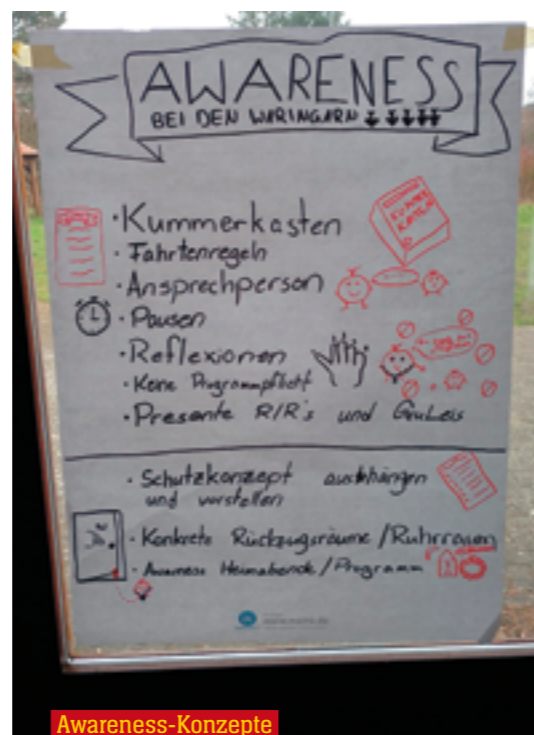 AWARENESS
BEI DEN WARINGARN
· Kummerkasten
· Fahrtenregeln
· Ansprechperson
· Pausen
· Reflexionen
· Keine Programmpflicht
· Presente R/R's und GruLeis
· Schutzkonzept aushängen
und vorstellen
· Konkrete Rückzugsräume /
· Awareness Heimabende / Programm
KUMMER
KASTEN
Awareness-Konzepte